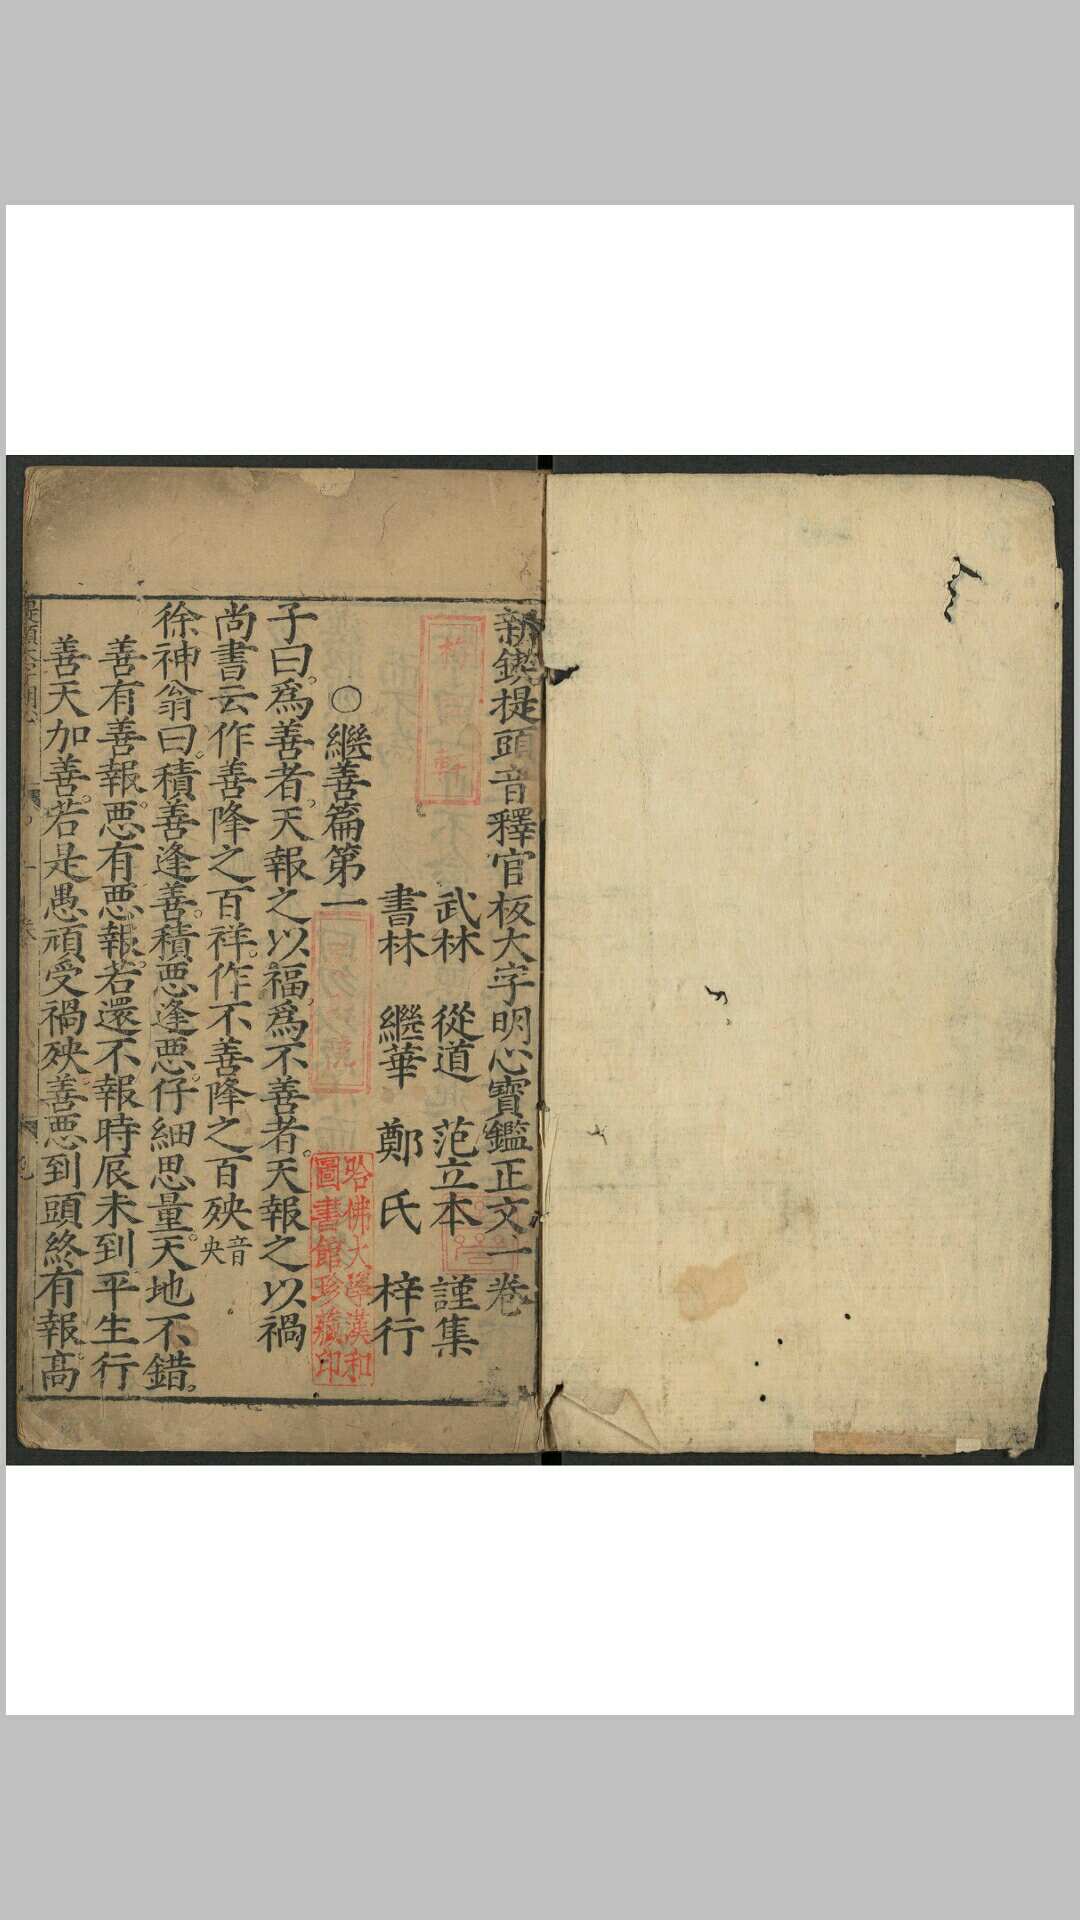 新鍥提頭音釋官板大字明心寶鑑正文一卷
武林 從道 范立本 謹集
書林 繼華 鄭氏 梓行
○繼善篇第一
子曰。爲善者。天報之以福。爲不善者。天報之以禍
尚書云作善降之百祥。作不善降之百殃音央。
徐神翁曰。積善逢善。積惡逢惡。仔細思量。天地不錯。
善有善報。惡有惡報。若還不報時辰未到平生行
善天加善。若是愚頑受禍殃。善惡到頭終有報。高
哈佛大學漢和
圖書館珍藏印